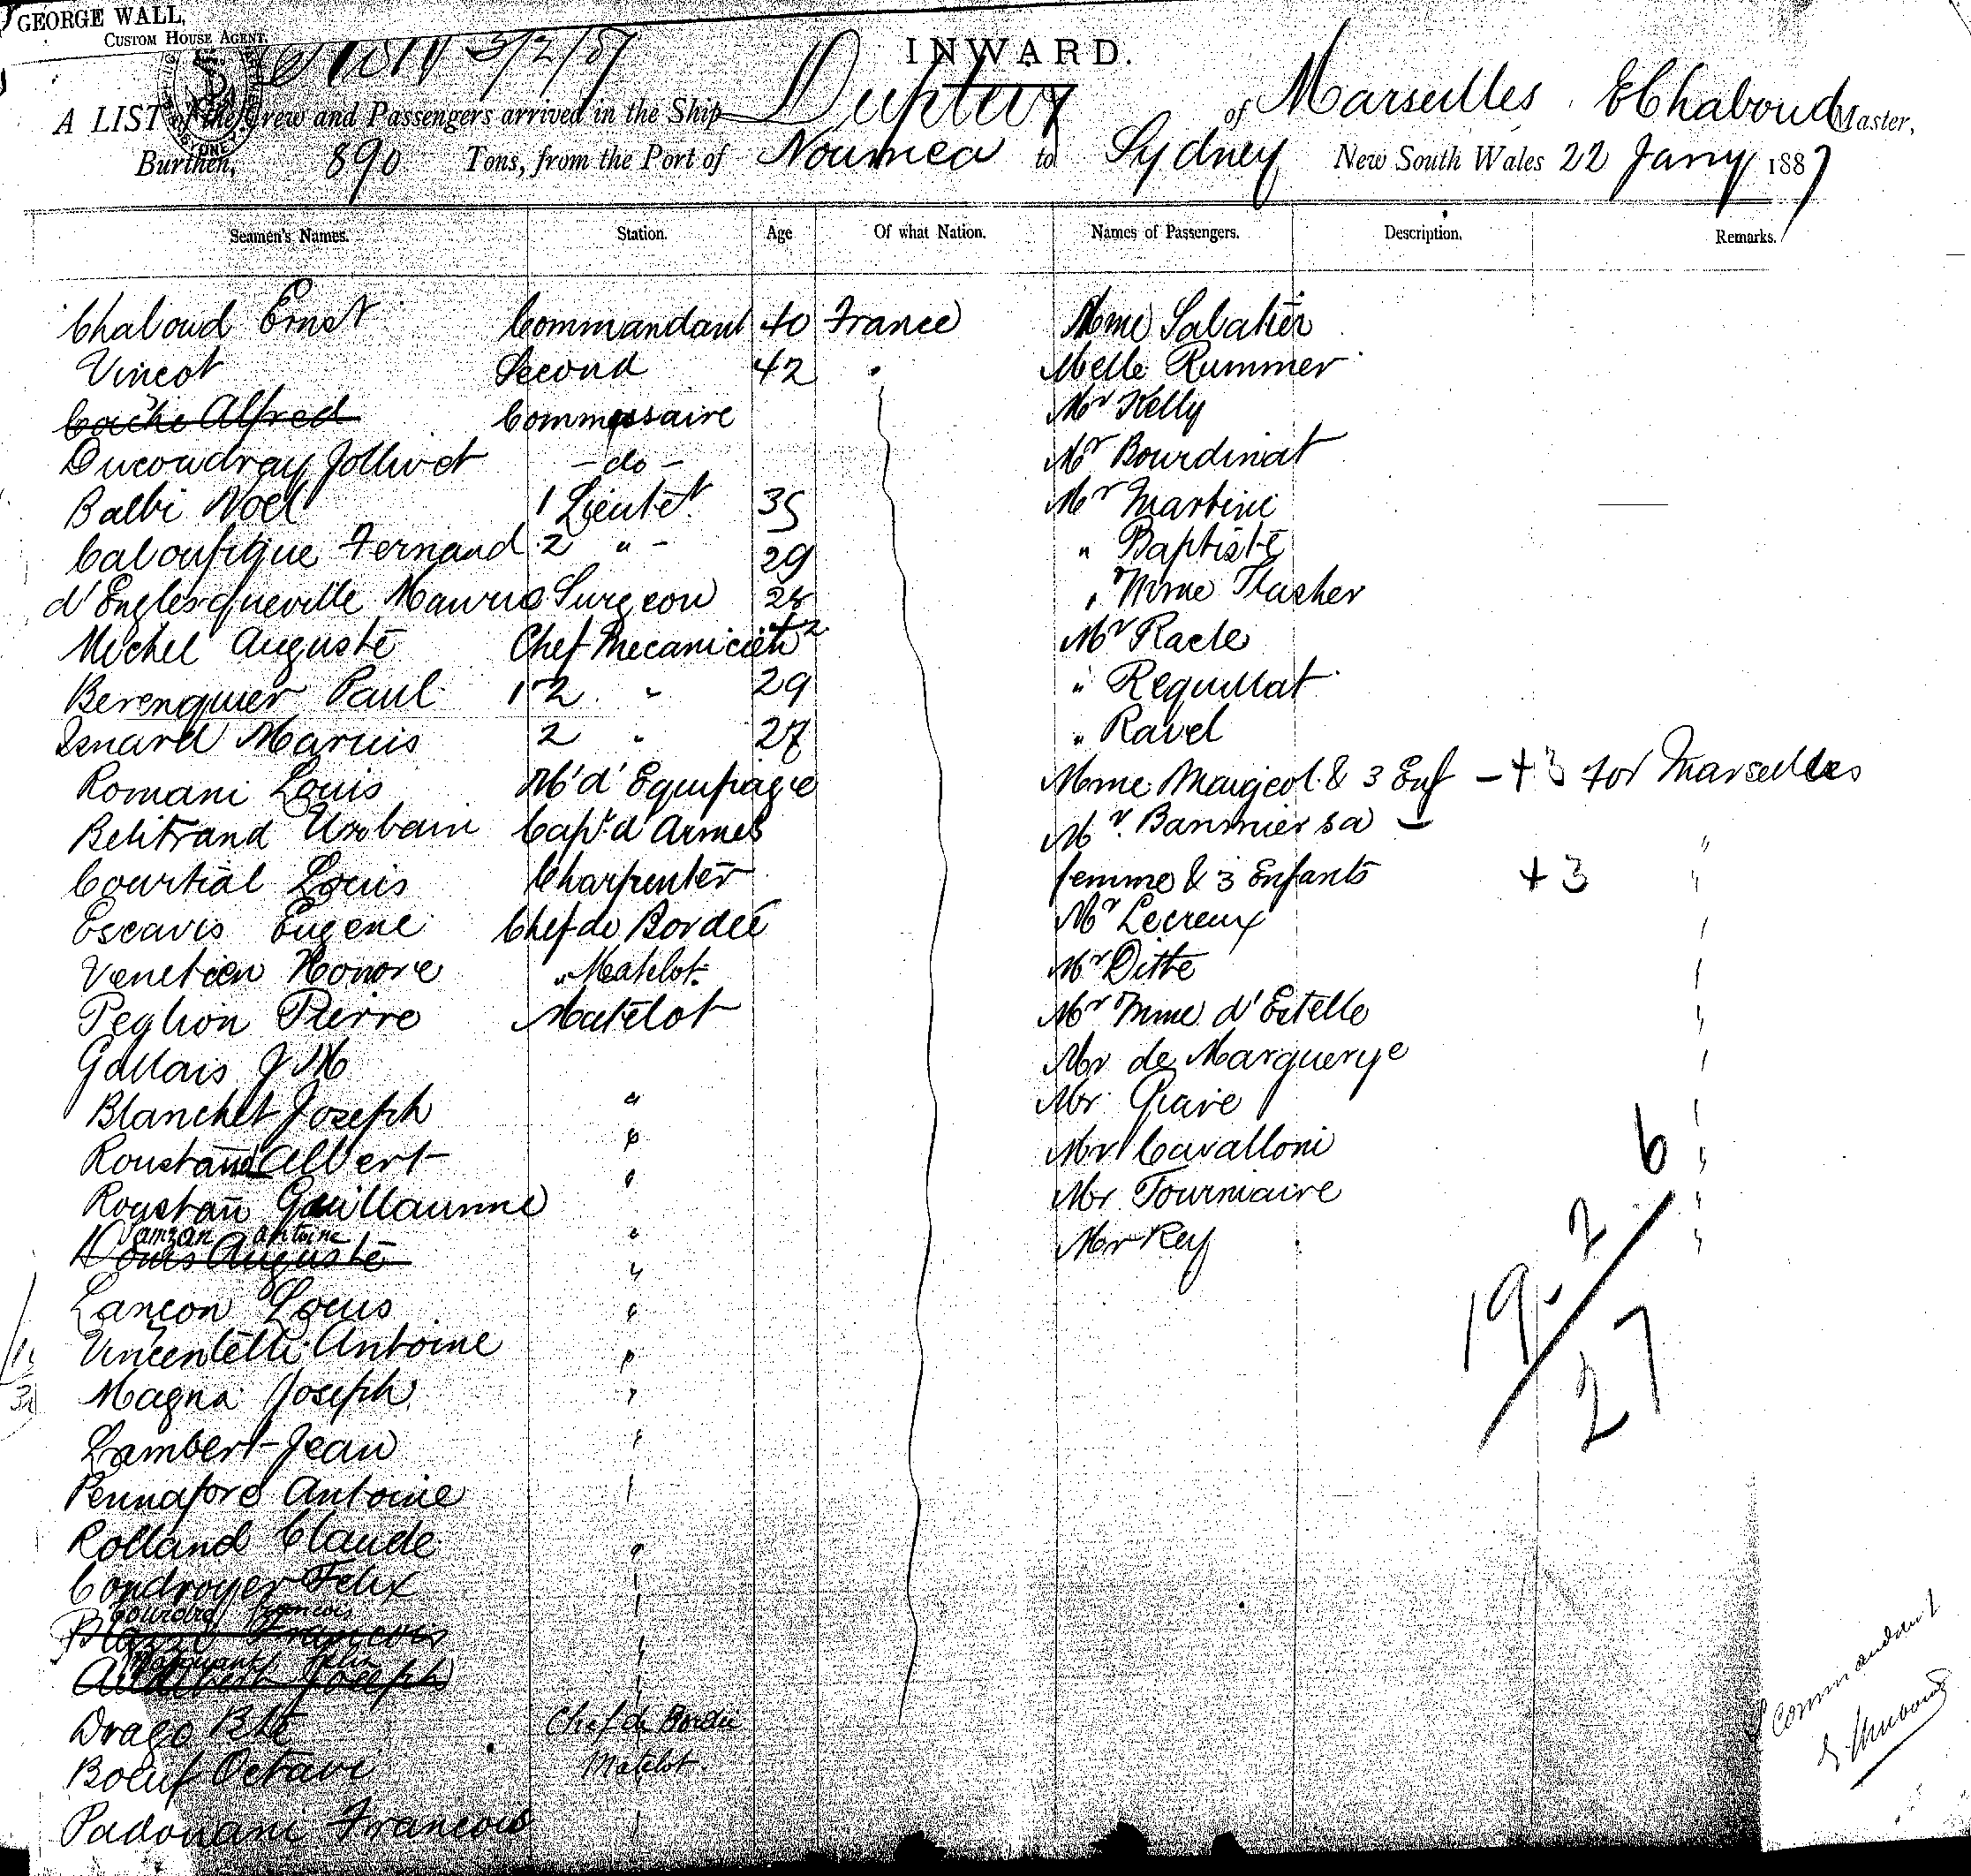 GEORGE WALL,
CUSTOM HOUSE AGENT.
3/2/87
INWARD.
A LIST of the Crew and Passengers arrived in the Ship Dupleix of Marseilles E Chaboud Master,
Burthen, 890 Tons, from the Port of Noumea to Sydney New South Wales 22 Jany 1887
Seamen's Names. Station. Age Of what Nation. Names of Passengers. Description. Remarks.
Chaboud Ernst Commandant 40 France Mme Sabatier
Vincot Second 42 " Melle Rummer
Coche Alfred Commissaire Mr Kelly
Ducoudray Jollivet - do - Mr Bourdinat
Balbi Noel 1 Lieutet 35 Mr Martini
Caboufigue Fernand 2 " - 29 " Baptiste
d'Englesqueville Maurice Surgeon 28 " Mme Flasher
Michel Auguste Chef Mecanicien 42 Mr Racle
Berenguier Paul 1 2 " 29 " Requillat
Isnard Marius 2 " 27 " Ravel
Romani Louis Mt d'Equipage Mme Maugeol & 3 Enf - + 3 for Marseilles
Belitrand Urbain Capt d'Armes Mr. Bannier sa - "
Courtial Louis Charpentier femme & 3 Enfants + 3 "
Escavis Eugene Chef de Bordée Mr Lecreux "
Venetien Honore " Matelot Mr Ditte "
Peglion Pierre Matelot Mr Mme d'Estelle "
Gallais J M Mr de Marguerye "
Blanchet Joseph " Mr Grave "
Roustand Albert " Mr Cavalloni " 6
Roustan Guillaumme " Mr Tourniaire " 2
Jamzan antoine
Louis Auguste " Mr Rey "
Lançon Louis " 19.
Vincentelli Antoine " 27
Magna Joseph "
Lambert Jean "
Pennaford Antoine "
Rolland Claude "
Condroyer Felix "
Gourdra francois
François "
Joseph "
Drago Bte Chef de Bordée
Boeuf Octave Matelot
Padouani Francois "
Commandant